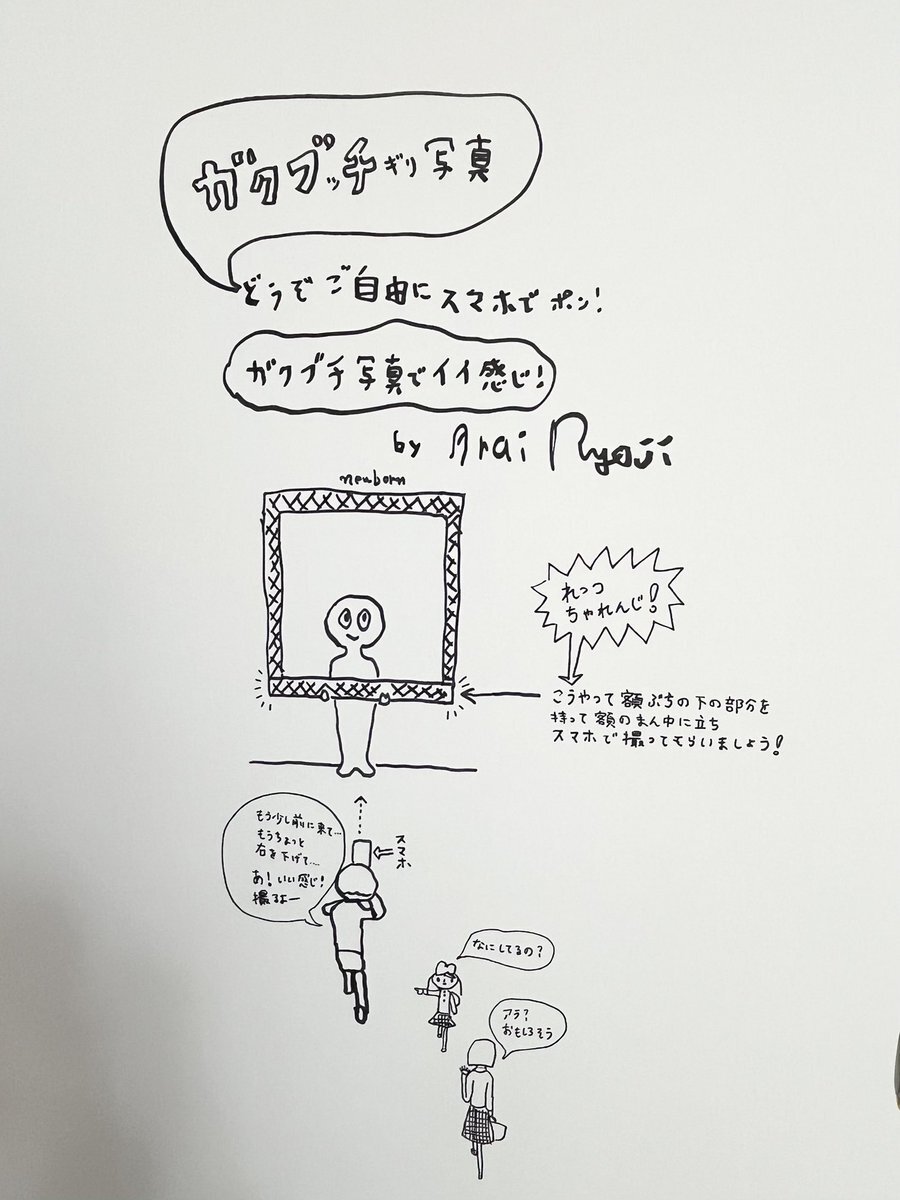 ガクブッチギリ写真
どうぞご自由にスマホでポン!
ガクブチ写真でイイ感じ!
by Arai Ryoji
newborn
れっつ
ちゃれんじ!
こうやって額ぶちの下の部分を
持って額のまん中に立ち
スマホで撮ってもらいましょう!
もう少し前に来て…
もうちょっと
右を下げて……
あ!いい感じ!
撮るよー
スマホ
なにしてるの?
アラ?
おもしろそう